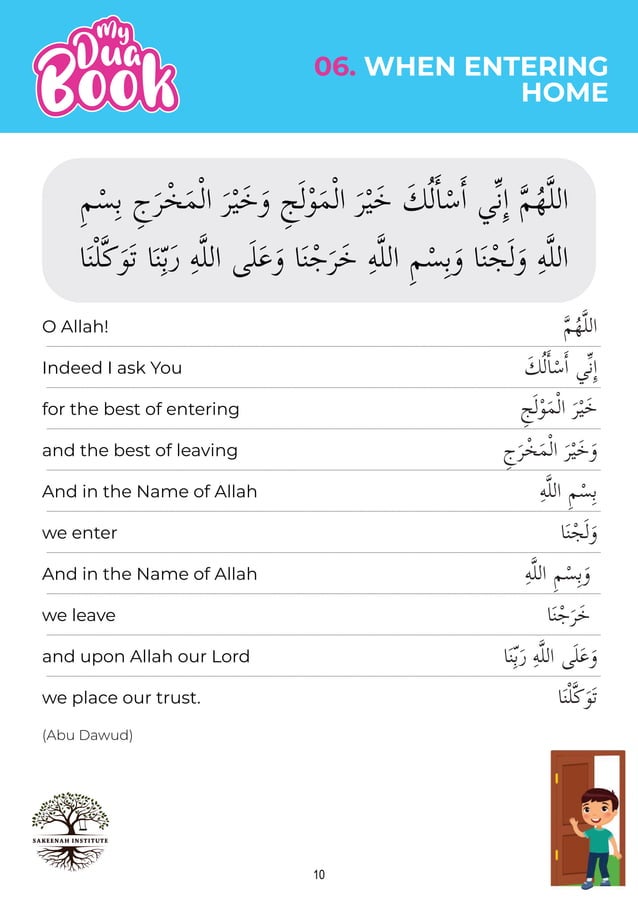 My
Dua
Book
06. WHEN ENTERING
HOME
اللَّهُمَّ إِنِّي أَسْأَلُكَ خَيْرَ الْمَوْلَجِ وَخَيْرَ الْمَخْرَجِ بِسْمِ
اللَّهِ وَلَجْنَا وَبِسْمِ اللَّهِ خَرَجْنَا وَعَلَى اللَّهِ رَبِّنَا تَوَكَّلْنَا
O Allah! اللَّهُمَّ
Indeed I ask You إِنِّي أَسْأَلُكَ
for the best of entering خَيْرَ الْمَوْلَجِ
and the best of leaving وَخَيْرَ الْمَخْرَجِ
And in the Name of Allah بِسْمِ اللَّهِ
we enter وَلَجْنَا
And in the Name of Allah وَبِسْمِ اللَّهِ
we leave خَرَجْنَا
and upon Allah our Lord وَعَلَى اللَّهِ رَبِّنَا
we place our trust. تَوَكَّلْنَا
(Abu Dawud)
SAKEENAH INSTITUTE
10